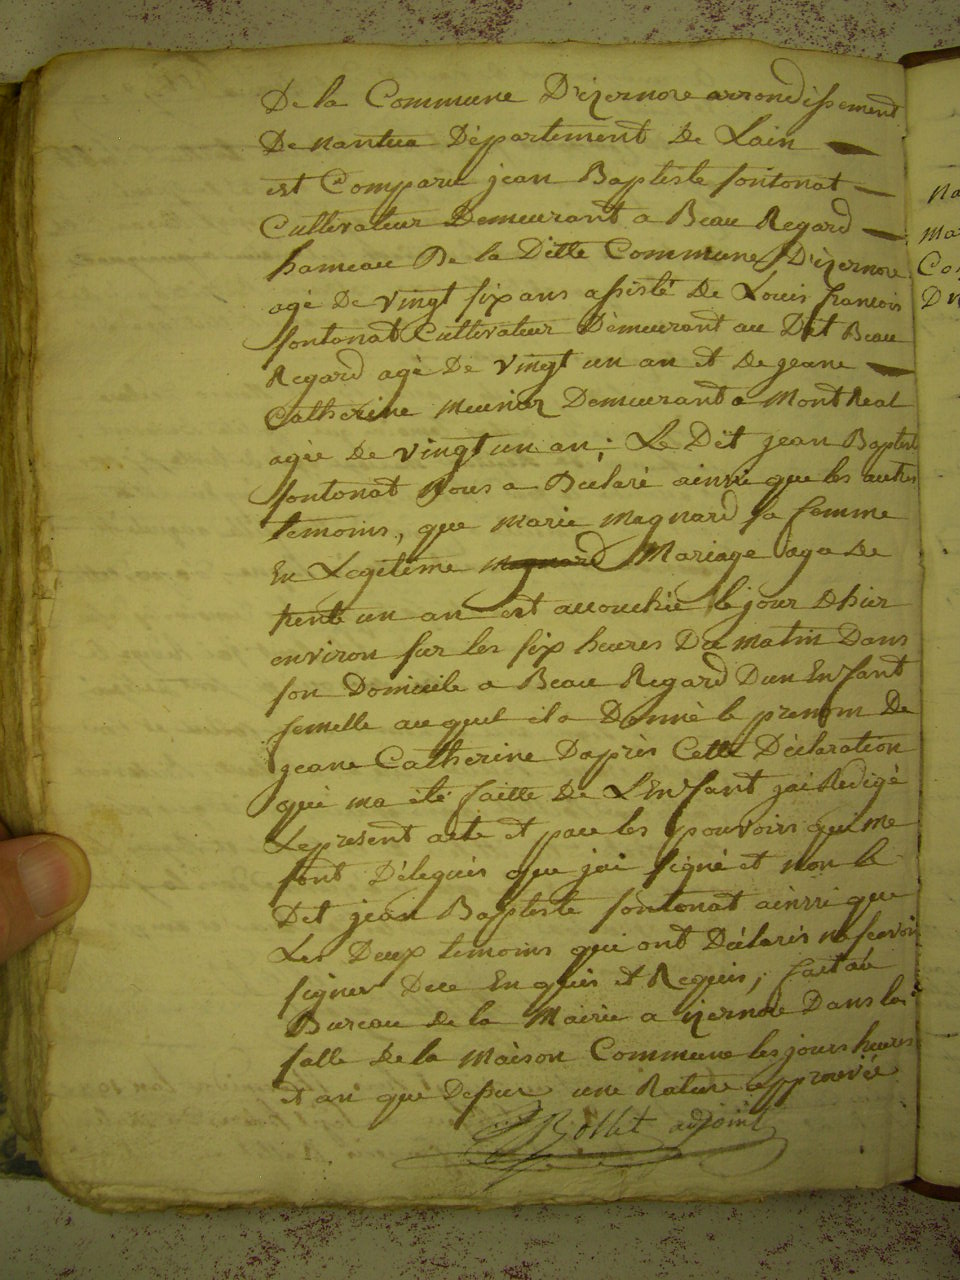 De la Commune D'izernore arrondissement
De nantua Département De Lain
est Comparu jean Baptiste fontonat
Cultivateur Demeurant a Beau Regard
hameau De la Ditte Commune D'izernore
agé De vingt six ans assisté De Louis francois
fontonat Cultivateur Demeurant au Dit Beau
Regard agé De vingt un an et De jeane
Catherine meunier Demeurant a Montreal
agée de vingt un an; Le Dit jean Baptiste
fontonat Nous a Déclaré ainsi que les autres
temoins, que marie magnard sa femme
En Legitime magnard Mariage aga de
trente un an est accouchée le jour d'hier
environ sur les six heures Du matin Dans
son Domicile a Beau Regard Dun Enfant
femelle au quel il a Donné le prenom De
jeane Catherine Daprès Cette Déclaration
qui ma été faitte De L'Enfant jai Redigé
Le present acte et par les pouvoirs qui me
sont Délegués que jai signé et non le
Dit jean Baptiste fontonat ainsi que
Les Deux temoins qui ont Déclarés ne scavoir
signer Dece Enquis et Requis; fait au
Bureau de la Mairie a izernore Dans la
salle de la Maison Commune les jours heures
et an que Dessus une Rature approuvée
Bollet adjoint
Na
Ma
Co
D